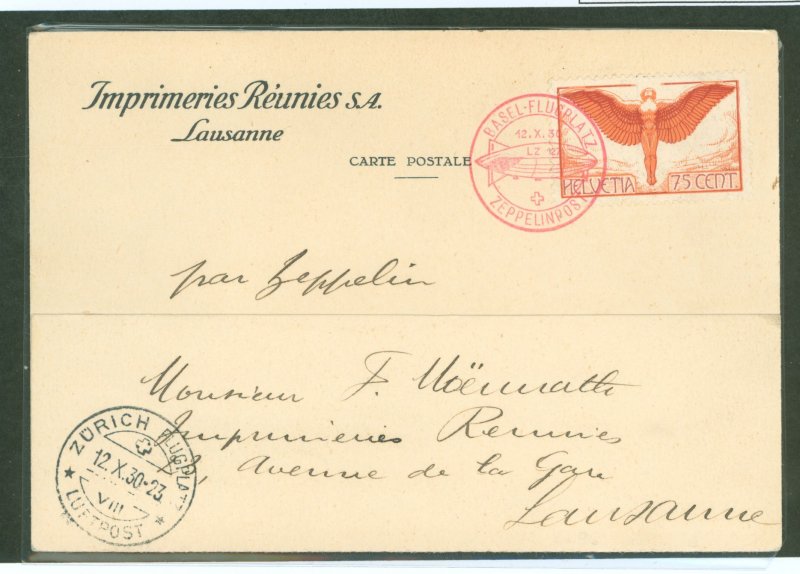 Imprimeries Réunies S.A.
Lausanne
CARTE POSTALE
BASEL-FLUGPLATZ
12.X.30
LZ 127
ZEPPELINPOST
HELVETIA 75 CENT.
par Zeppelin
Monsieur F.
Imprimeries Reunies
Avenue de la Gare
Lausanne
ZÜRICH FLUGPLATZ
12.X.30-23
VIII
LUFTPOST